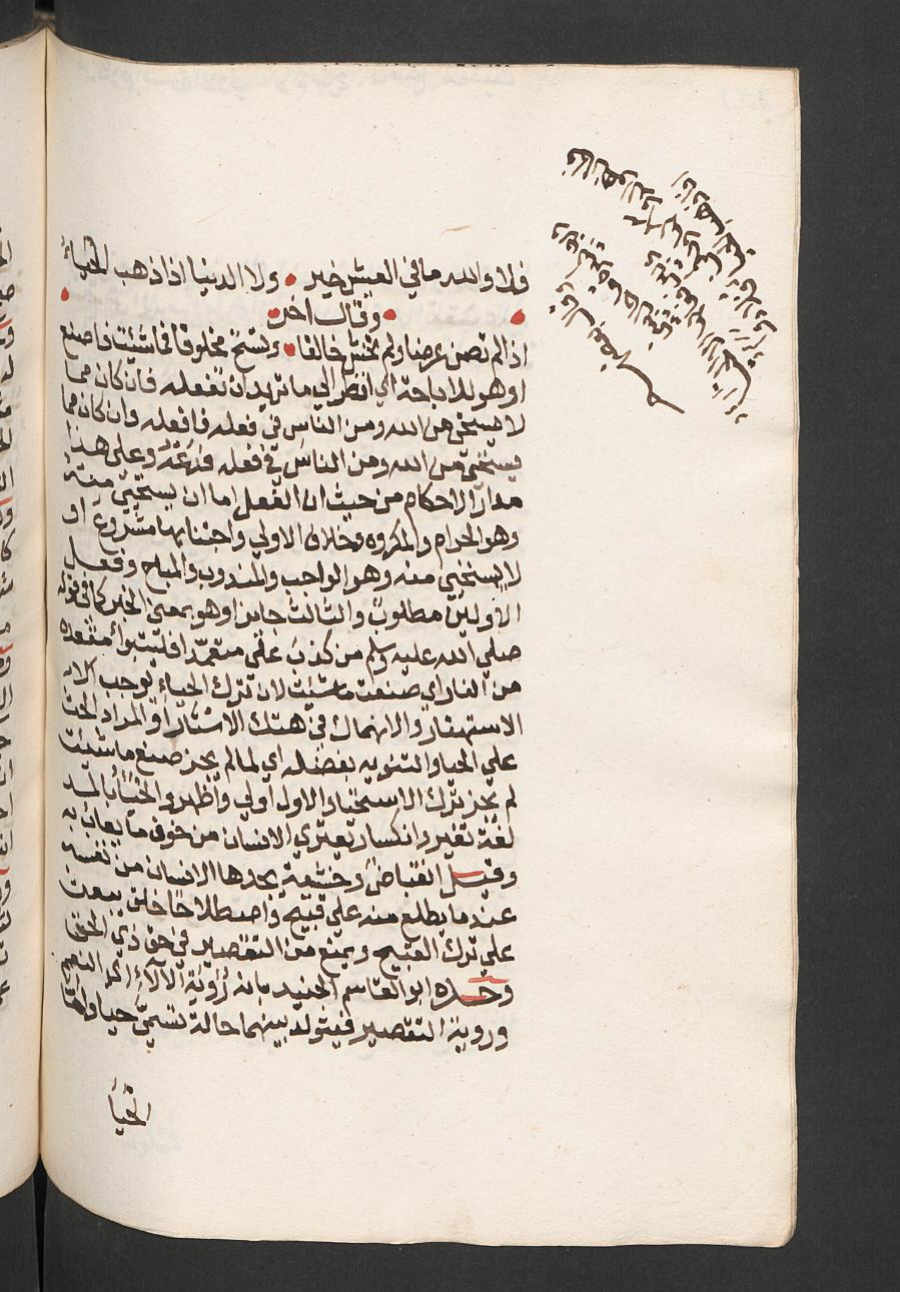 فلا والله ما في العيش خير ولا الدنيا اذا ذهب الحياء
وقال اخر
اذا لم تصن عرضا ولم تخش خالقا وتستح مخلوقا فما شئت فاصنع
او هو للاباحة اي انظر الي ما تريد ان تفعله فان كان مما
لا يستحي من الله ومن الناس في فعله فافعله وان كان مما
يستحي من الله ومن الناس في فعله فدعه وعلي هذا
مدار الاحكام من حيث ان الفعل اما ان يستحيي منه
وهو الحرام والمكروه وخلاف الاولي واجتنابها مشروع او
لا يستحيي منه وهو الواجب والمندوب والمباح وفعل
الاولين مطلوب والثالث جايز او هو بمعني الخبر كما في قوله
صلي الله عليه وسلم من كذب علي متعمدا فليتبوأ مقعده
من النار اي صنعت ما شئت لان ترك الحياء يوجب
الاستهتار والانهماك في هتك الاستار او المراد الحث
علي الحيا والتنويه بفضله اي لما لم يجز صنع ما شئت
لم يجز ترك الاستحيا والاول اولي واظهر والحياء بالمد
لغة تغير وانكسار يعتري الانسان من خوف ما يعاب به
وقيل انقباض وخشية يجدها الانسان من نفسه
عند ما يطلع منه علي قبيح واصطلاحا خلق يبعث
علي ترك القبيح ويمنع من التقصير في حق ذي الحق
وحده ابو القاسم الجنيد بانه رؤية الالاء اي النعم
وروية التقصير فيتولد بينهما حالة تسمي حيا واصل
الحيا